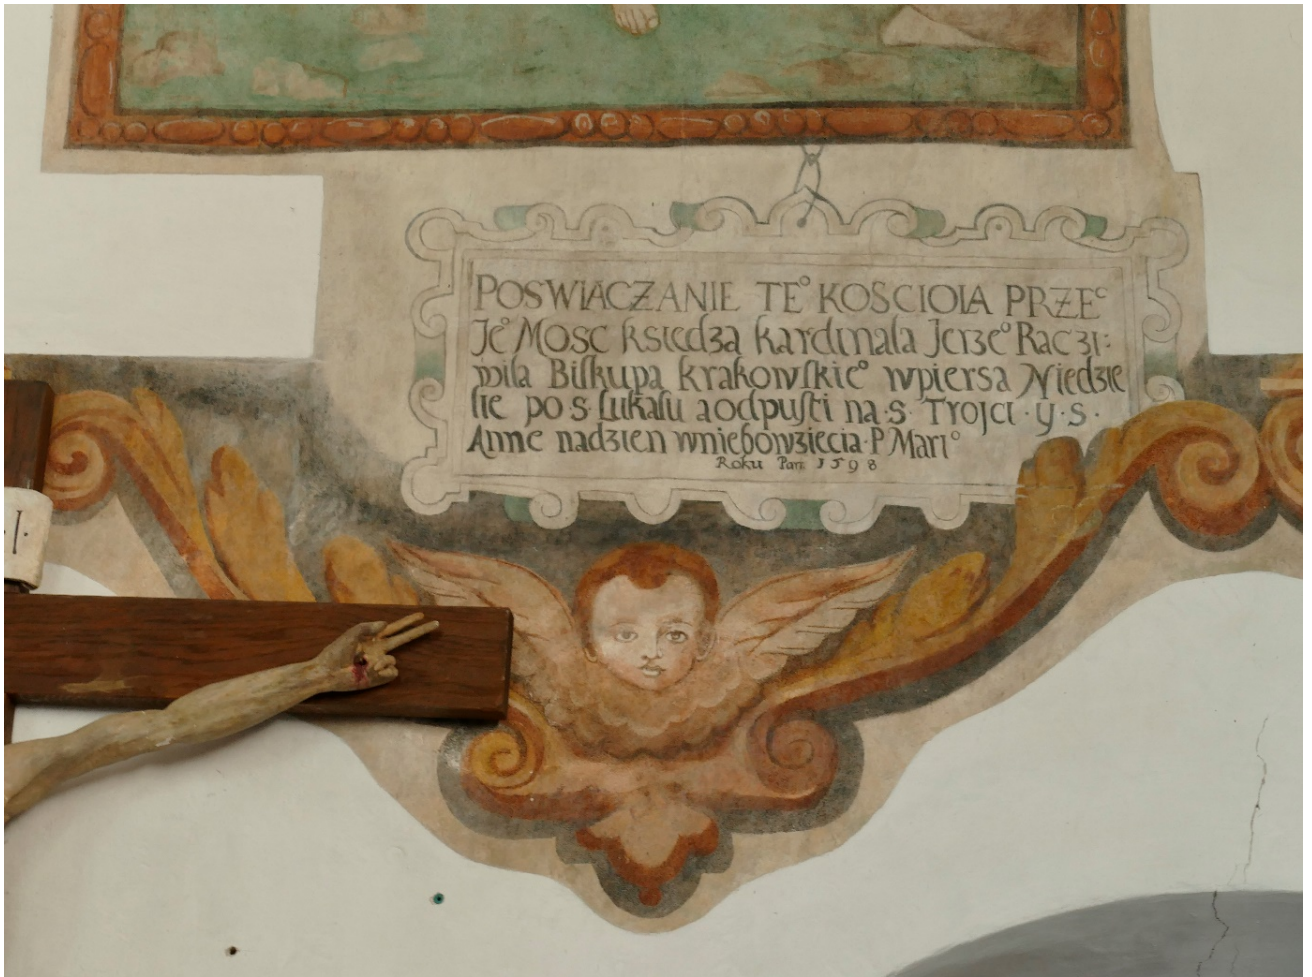 POSWIĄCZANIE TE° KOSCIOłA PRZEC
Je° Mosc księdza kardinała Jerze° Raczi:
wiła Biſkupa krakowſkie° wpiersa Niedzie
lie po s. Łukaſu a odpuſti na .s. Trojci .y.s.
Anne nadzien wniebowzięcia. P. Mari°
Roku Pan. 1598
I.